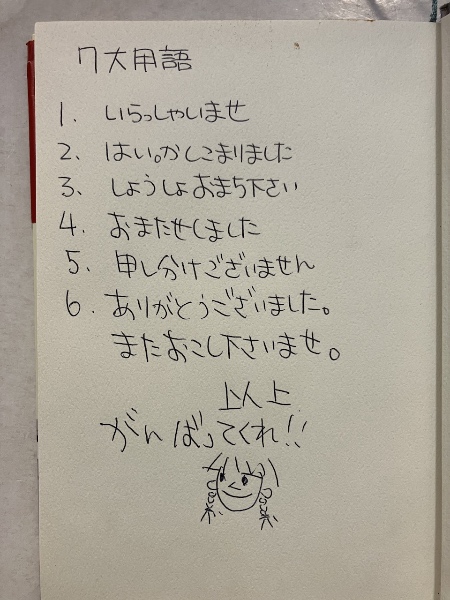 7大用語
1. いらっしゃいませ
2. はい。かしこまりました
3. しょうしょおまち下さい
4. おまたせしました
5. 申し分けございません
6. ありがとうございました。
またおこし下さいませ。
以上
がんばってくれ!!